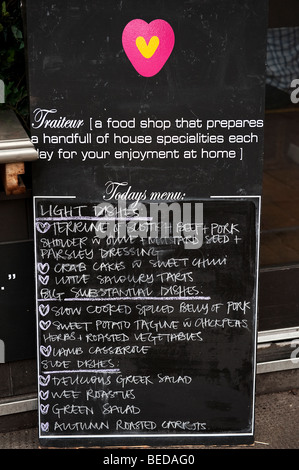 Traiteur [a food shop that prepares
a handfull of house specialities each
day for your enjoyment at home]
Todays menu:
LIGHT DISHES
TERRINE OF SCOTCH BEEF + PORK
SHOULDER W OLIVE + MUSTARD SEED +
PARSLEY DRESSING
CRAB CAKES W SWEET CHILLI
LITTLE SAVOURY TARTS
BIG SUBSTANTIAL DISHES:
SLOW COOKED SPICED BELLY OF PORK
SWEET POTATO TAGINE W CHICKPEAS
HERBS + ROASTED VEGETABLES
LAMB CASSEROLE
SIDE DISHES:
DELICIOUS GREEK SALAD
WEE ROASTIES
GREEN SALAD
AUTUMN ROASTED CARROTS
alamy
Image ID: BEDAG0
www.alamy.com